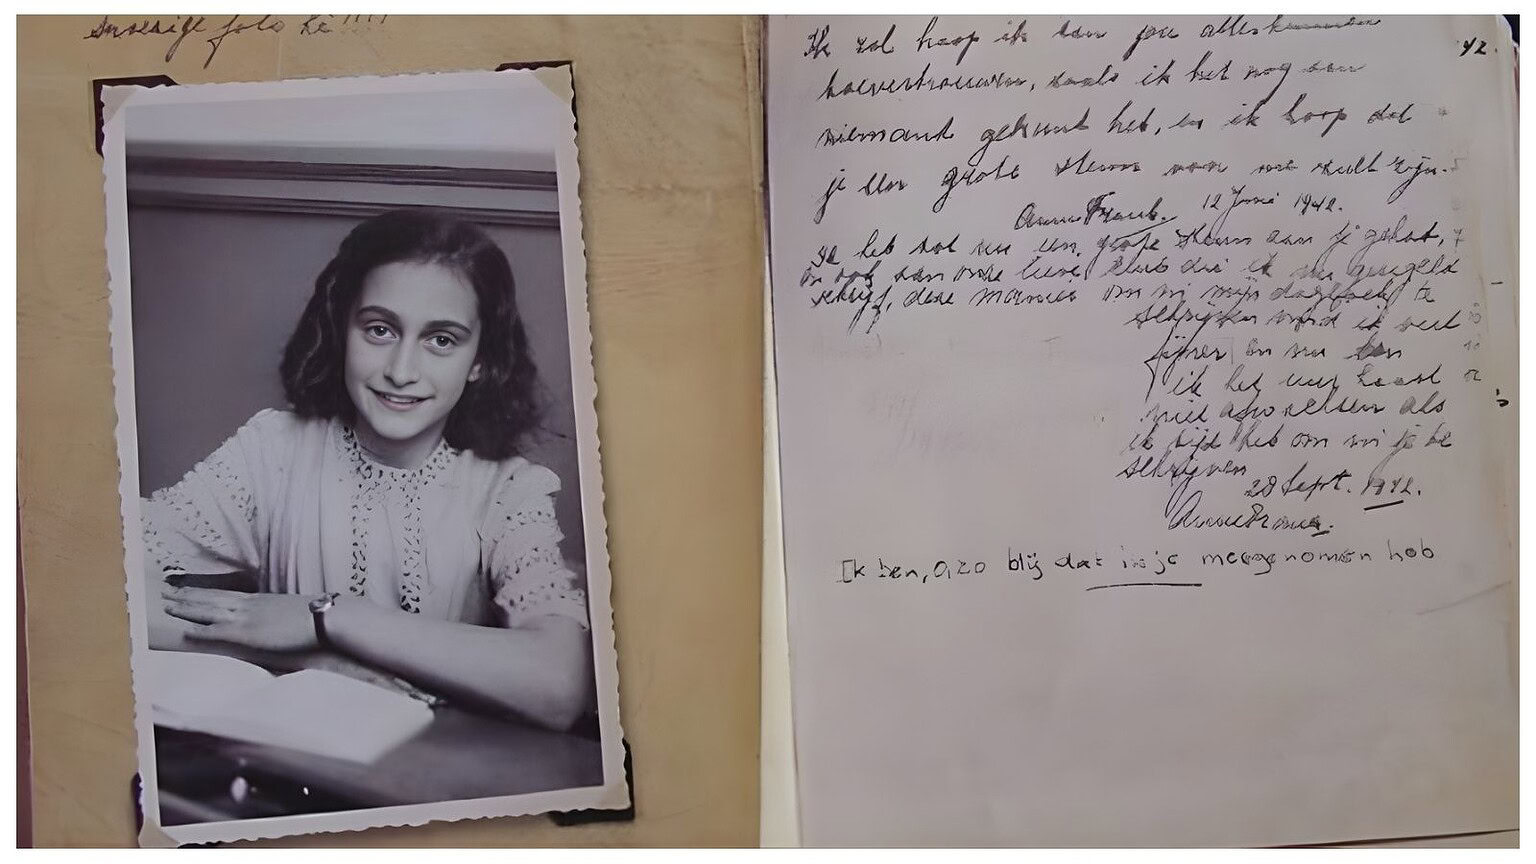 Snoezige foto hè !!!!
Ik zal hoop ik aan jou alles kunnen
42.
toevertrouwen, zoals ik het nog aan
niemand gekunt heb, en ik hoop dat
je een grote steun van me zult zijn.
Anne Frank. 12 Juni 1942.
Ik heb tot nu een grote steun aan je gehat,
en ook aan onze lieve club die ik nu geregeld
schrijf, deze manier om in mijn dagboek te
schrijven vind ik veel
fijner en nu kan
ik het uur haast
niet afwachten als
ik tijd heb om in je te
schrijven
28 Sept. 1942.
Anne Frank.
Ik ben, O, zo blij dat ik je meegenomen heb